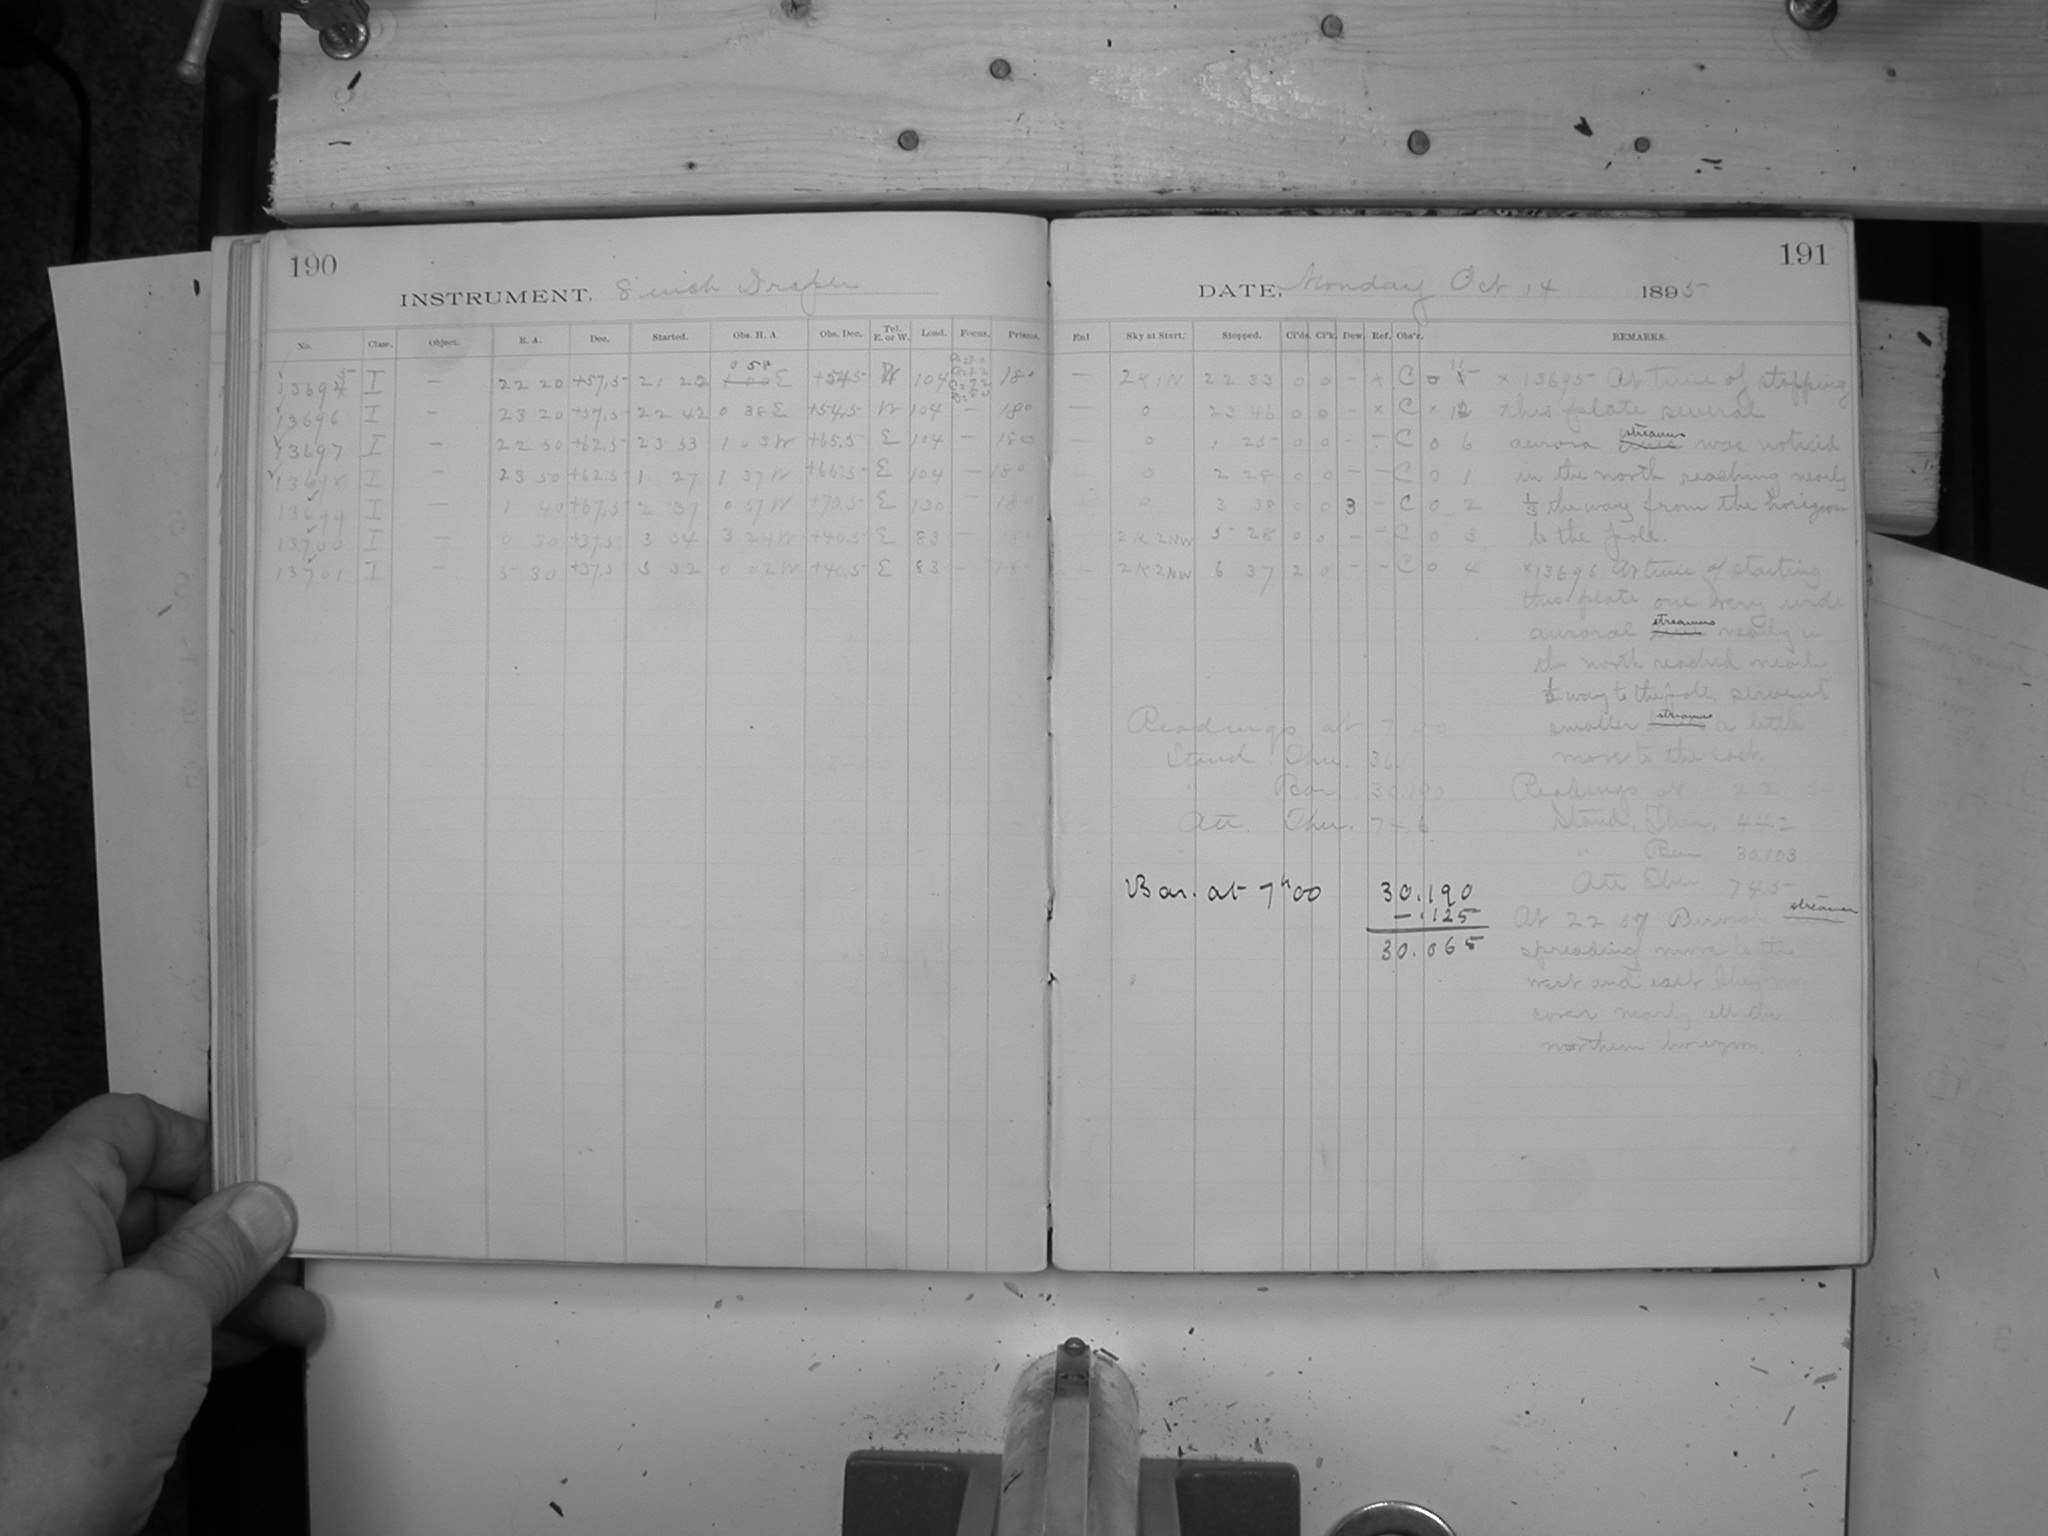 190
INSTRUMENT. 8 inch Draper
No. Class. Object. R. A. Dec. Started. Obs. H. A. Obs. Dec. Tel. E. or W. Load. Focus. Prisms.
13695 I – 22 20 +57.5 21 29 0 58 E +54.5 W 104 180
13696 I – 23 20 +57.5 22 42 0 38 E +54.5 W 104 – 180
13697 I – 22 50 +62.5 23 53 1 03 W +65.5 E 104 – 180
13698 I – 23 50 +62.5 1 27 1 37 W +65.5 E 104 – 180
13699 I – 1 40 +67.5 2 37 0 57 W +70.5 E 130 – 180
13700 I – 0 30 +37.5 3 54 3 24 W +40.5 E 83 – 180
13701 I – 5 30 +37.5 5 32 0 02 W +40.5 E 83 – 180
191
DATE, Monday Oct 14 1895
Exl Sky at Start. Stopped. Cl'ds. Cl'k. Dew. Ref. Obs'r. REMARKS.
– 2K1N 22 33 0 0 – x C 0 x 13695 At time of stopping
– 0 23 46 0 0 – x C x 12 this plate several
0 1 25 0 0 – – C 0 6 aurora streamers was noticed
0 2 28 0 0 – – C 0 1 in the north reaching nearly
0 3 38 0 0 3 – C 0 2 1/3 the way from the horizon
2K2NW 5 28 0 0 – – C 0 3 to the pole.
2K2NW 6 37 2 0 – – C 0 4 x 13696 At time of starting
this plate one very wide
auroral streamers nearly in
the north reached nearly
way to the pole several
smaller streamers a little
more to the east.
Readings at 7 00
Stand. Ther. 36.1
" Bar. 30.190
Att. Ther. 74.6
Readings at 22 50
Stand. Ther. 44.2
" Bar 30.103
Att Ther 74.5
Bar. at 7h00 30.190
– .125
30.065
At 22 57 streamer
spreading more to the
west and east they
cover nearly all the
northern horizon.